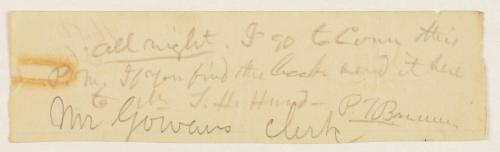 all right. I go to Conn this
P. M. If you find the book send it here
to Mr S. H. Hurd — P. T. Barnum
Mr Gowans Clerk